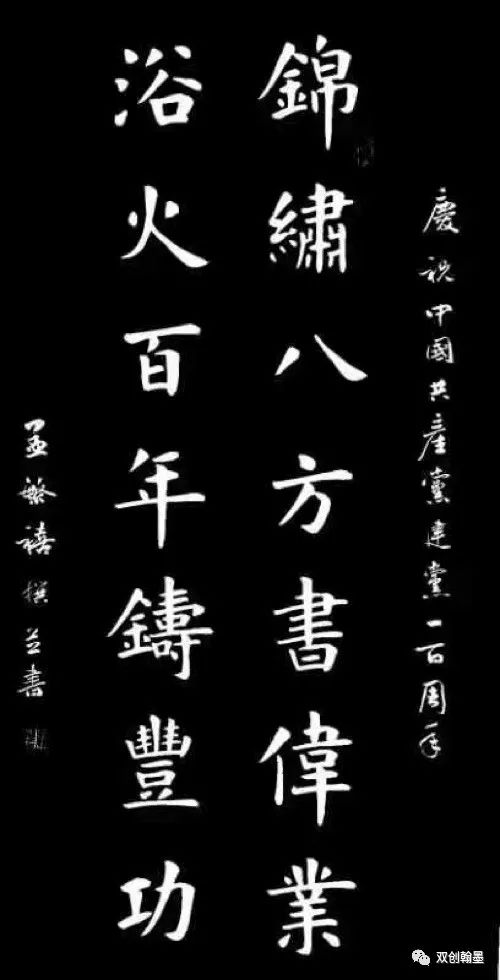 慶祝中國共產黨建黨一百周年
錦繡八方書偉業
浴火百年鑄豐功
孟繁禧撰並書
双创翰墨